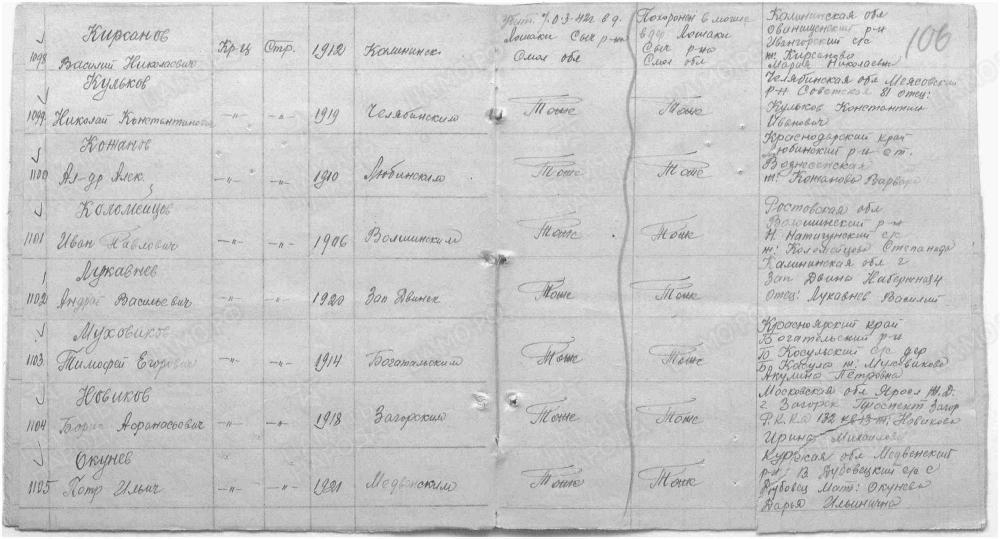 106
1098 Кирсанов Василий Николаевич Кр-ц Стр. 1912 Калининск.
7.03.42г в д.
Лошаки Сыч р-на
Смол обл
Похоронен в могиле
в дер Лошаки
Сыч р-на
Смол обл
Калининская обл
Овинищенский р-н
Ивангорский с/с
ж. Кирсанова
Мария Николаевн
1099 Кульков Николай Константинович -"- -"- 1919 Челябинским Тоже Тоже
Челябинская обл Миасовский
р-н Советская 81 отец:
Кульков Константин
Иванович
1100 Кожанов Ал-др Алек. -"- -"- 1910 Любинским Тоже Тоже
Краснодарский край
Любинский р-н ст.
Вознесенская
ж: Кожанова Варвара
1101 Коломейцов Иван Павлович -"- -"- 1906 Волошинским Тоже Тоже
Ростовская обл
Волошинский р-н
с/с
ж: Коломейцова Степанида
1102 Лукавнев Андрей Васильевич -"- -"- 1920 Зап Двинск Тоже Тоже
Калининская обл г
Зап Двина Набережная 4
Отец: Лукавнев Василий
1103 Муховиков Тимофей Егорович -"- -"- 1914 Богатольским Тоже Тоже
Красноярский край
Богательский р-н
Б Косульский с/с дер
Бо Косула ж: Муховикова
Акулина Петровна
1104 Новиков Борис Афанасьевич -"- -"- 1918 Загорским Тоже Тоже
Московская обл Яросл Ж.Д.
г Загорск Проспект Загор
132 кв 13 Новикова
Ирина Михайлова
1105 Окунев Петр Ильич -"- -"- 1921 Медвенским Тоже Тоже
Курская обл Медвенский
р-н: В Дубовецкий с/с с
Дубовец Мат: Окунева
Дарья Ильинична